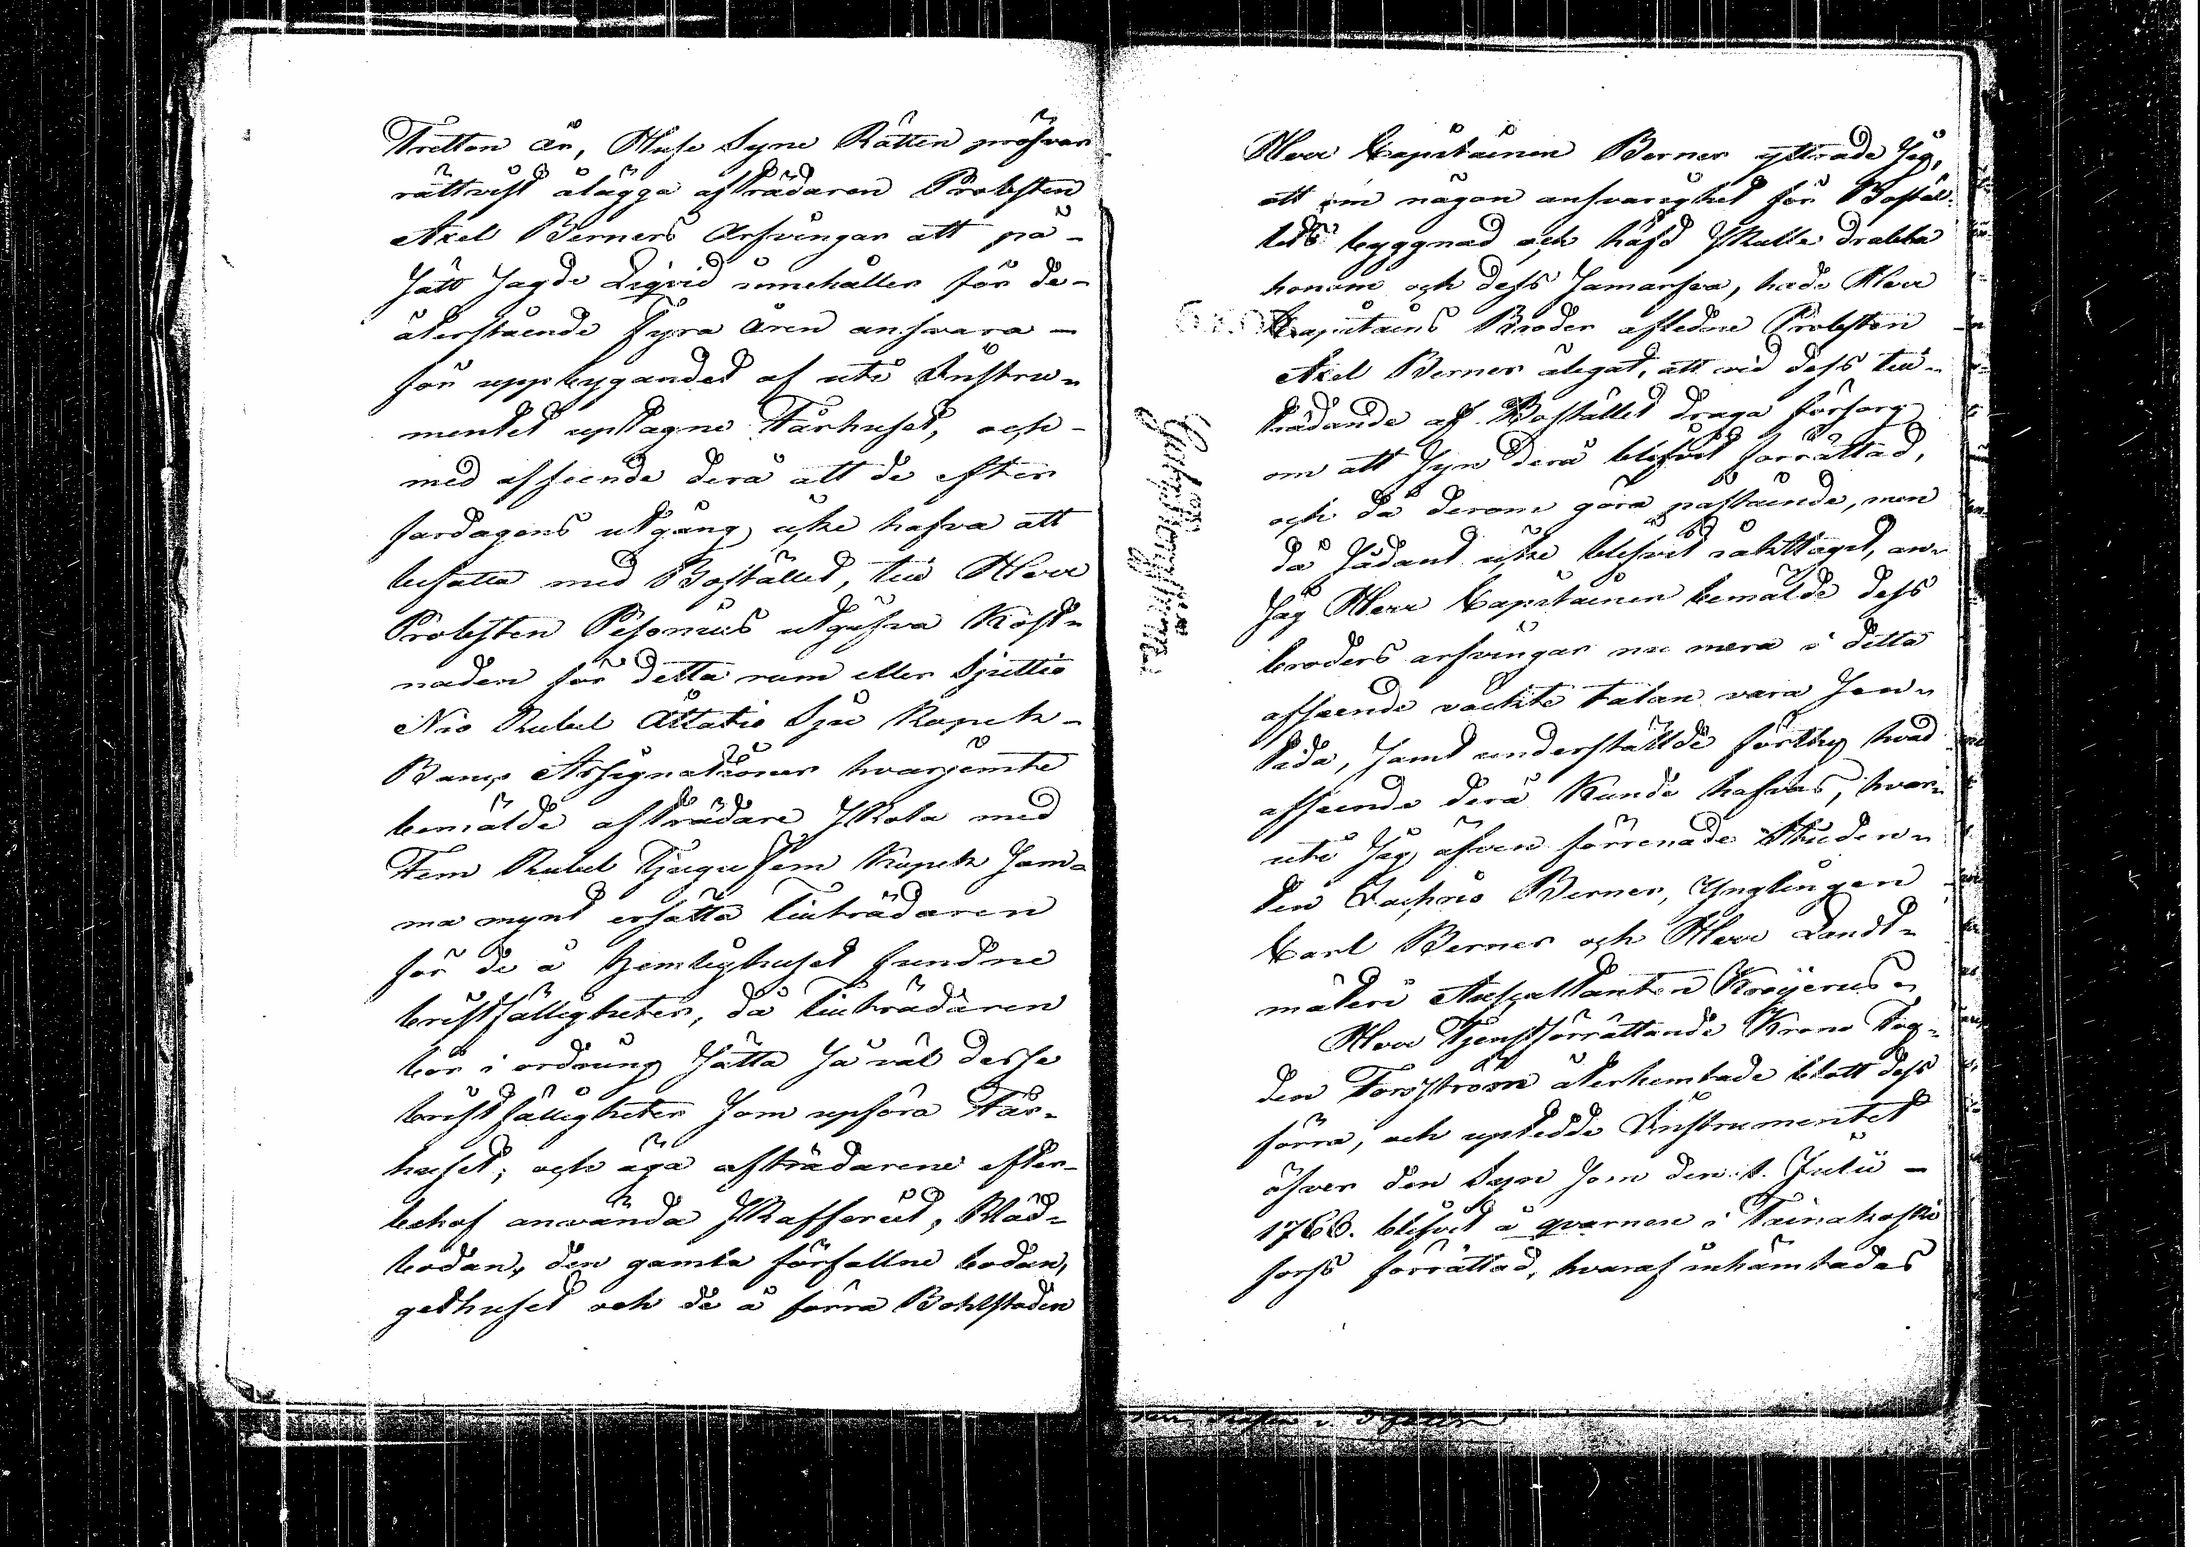 Tretton år, Huse Syne Rätten pröfvar
rättvist ålägga afträdaren Probsten
Axel Berners Arfvingar att på
sätt sagde Liqvid innehåller för de
återstående fyra åren ansvara
för uppbygandet af uti Instru-
mentet uptagne Fårhuset, och
med afseende derå att de efter
fardagens utgång icke hafva att
befatta med Bostället, till Herr
Probsten Pesonius utgifva Kost-
naden för detta rum eller Sjuttio
Nio Rubel Åttatio Sju Kopek
Banco Assignationer hvarjemte
bemälde afträdare skola med
Fem Rubel Tjugufem Kopek sam-
ma mynt ersätta tillträdaren
för de å hemlighuset fundne
bristfälligheter, då tillträdaren
bör i ordning sätta så väl desse
bristfälligheter som upföra Får-
huset; och äga afträdarene efter
behof använda skafferiet, Kläd-
bodan, den gamla förfallne bodan,
gethuset och de å förra Bohlstaden
Herr Capitainen Berner yttrade sig,
att om någon ansvarighet för Bostäl-
lets byggnad och häfd skulle drabba
honom och dess Samarfva, hade Herr
Capitains Broder afledne Probsten
Axel Berner ålegat, att vid dess till-
trädande af Bostället draga försorg
om att syn derå blifvit förrättad,
och då derom göra påstående, men
då sådant icke blifvit iakttaget, an-
såg Herr Capitainen bemälde dess
broders arfvingar nu mera i detta
afseende väckte talan vara sen-
tida, samt underställde förthy hvad
afseende derå kunde hafvas, hvar-
uti sig äfven förrenade Studen-
ten Zachris Berner, Ynglingen
Carl Berner och Herr Landt-
mäteri Auscultanten Kröijerus
Herr Tjenstförrättande Krono Fog-
den Forsström återhemtade blott dess
förra, och uptedde Instrumentet
öfver den Syn som den 1. Julii
1766. blifvit å qvarnen i Tainakoski
forss förrättad, hvaraf inhämtades